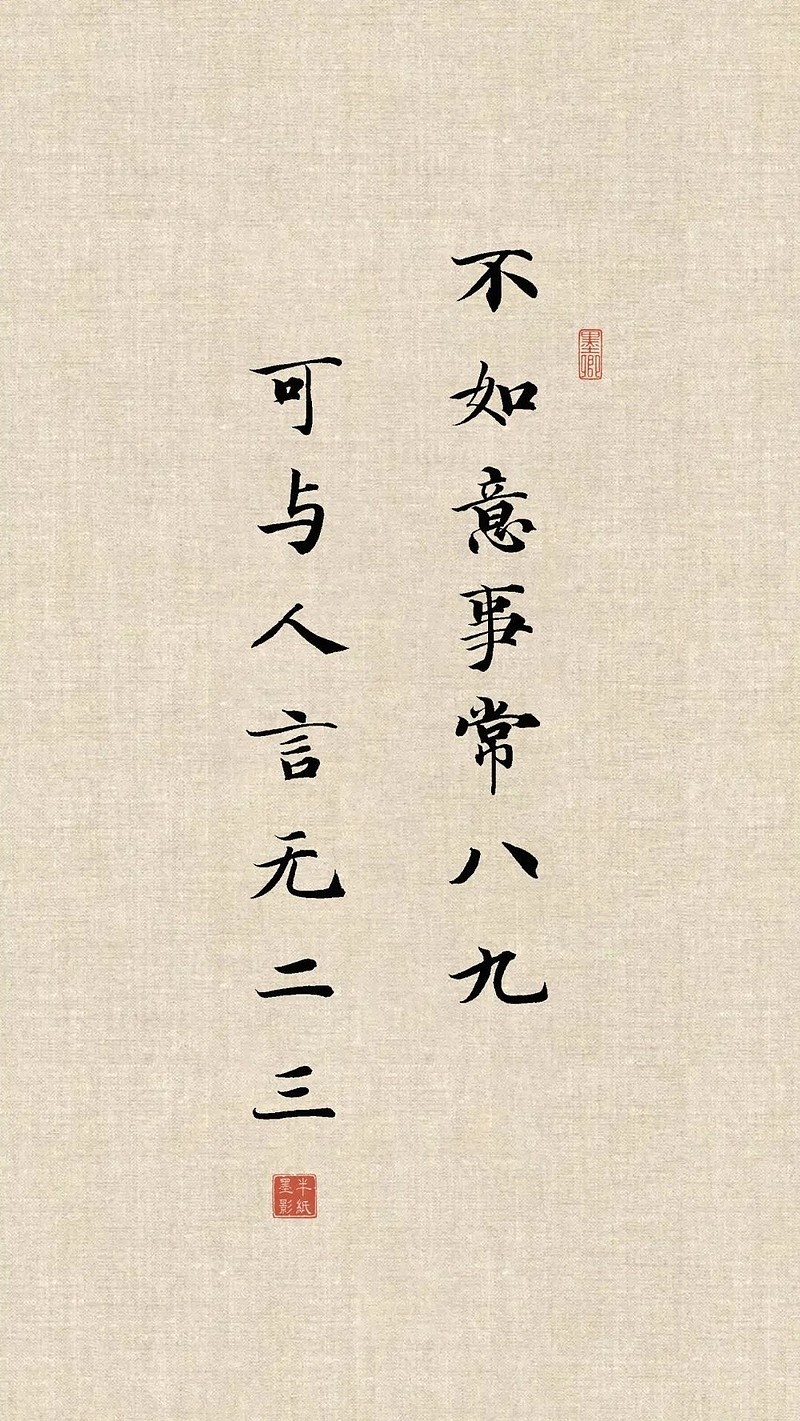 不如意事常八九
可与人言无二三
墨卿
半纸墨影